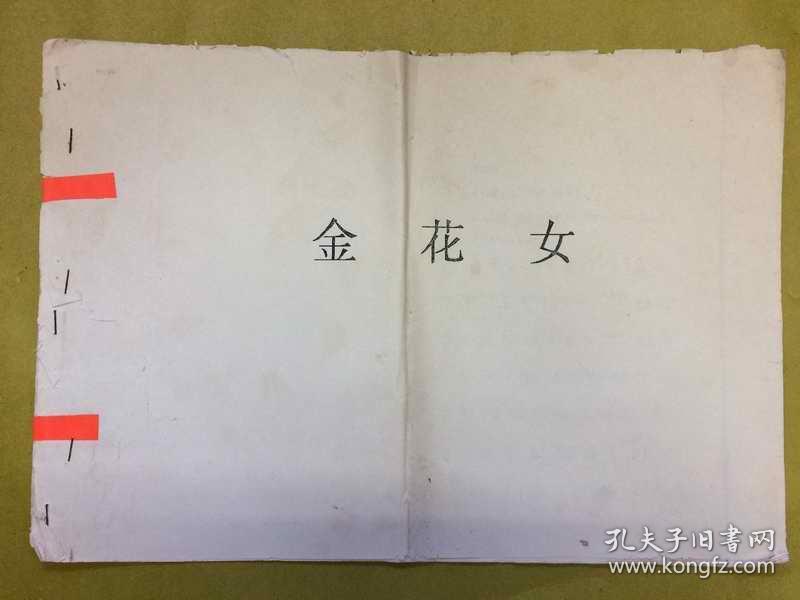 金花女
孔夫子旧書网
www.kongfz.com